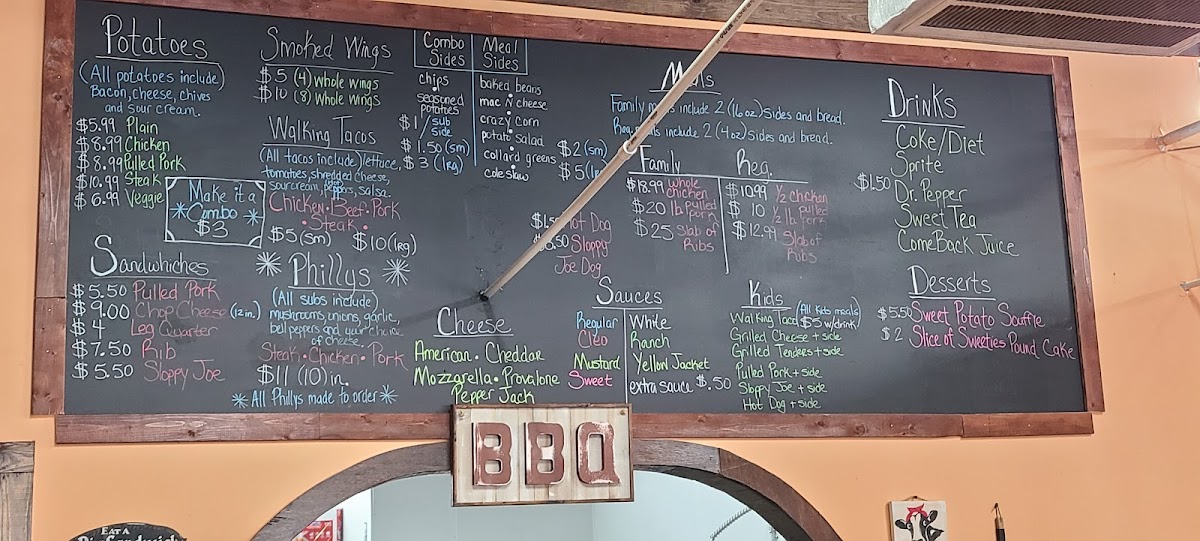 Potatoes
(All potatoes include)
Bacon, cheese, chives
and sour cream.
$5.99 Plain
$8.99 Chicken
$8.99 Pulled Pork
$10.99 Steak
$6.99 Veggie
Make it a
Combo
$3
Smoked Wings
$5 (4) whole wings
$10 (8) whole wings
Walking Tacos
(All tacos include) lettuce,
tomatoes, shredded cheese,
sour cream, peppers, salsa
Chicken • Beef • Pork
• Steak •
$5 (sm) $10 (lrg)
Combo
Sides
chips
•
seasoned
potatoes
$1/sub
side
$1.50 (sm)
$3 (lrg)
Meal
Sides
baked beans
mac N cheese
crazy corn
potato salad
collard greens
coleslaw
$2 (sm)
Meals
Family meals include 2 (16oz) sides and bread.
Reg. meals include 2 (4oz) sides and bread.
Family
$18.99 whole
chicken
$20 lb pulled
pork
$25 Slab of
Ribs
Reg.
$10.99 1/2 chicken
$10 1/2 lb pulled
pork
$12.99 Slab of
Ribs
Drinks
Coke/Diet
Sprite
$1.50 Dr. Pepper
Sweet Tea
ComeBack Juice
Sandwhiches
$5.50 Pulled Pork
$9.00 Chop Cheese (12 in.)
$4 Leg Quarter
$7.50 Rib
$5.50 Sloppy Joe
Phillys
(All subs include)
mushrooms, onions, garlic,
bell peppers and your choice
of cheese.
Steak • Chicken • Pork
$11 (10) in.
*All Phillys made to order*
Hot Dog
Sloppy
Joe Dog
Cheese
American • Cheddar
Mozzarella • Provalone
Pepper Jack
Sauces
Regular
Cleo
Mustard
Sweet
White
Ranch
Yellow Jacket
extra sauce $.50
Kids
(All Kids meals)
$5 w/drink
Walking Taco
Grilled Cheese + side
Grilled Tenders + side
Pulled Pork + side
Sloppy Joe + side
Hot Dog + side
Desserts
$5.50 Sweet Potato Souffle
$2 Slice of Sweeties Pound Cake
BBQ
EAT A